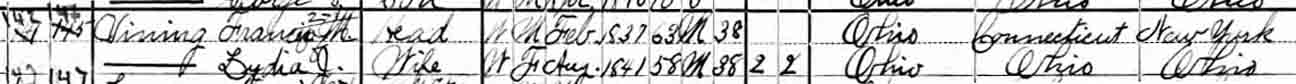 Vining Francis M. Head W M Feb. 1837 63 M 38 Ohio Connecticut New York
147 Lydia J. Wife W F Aug. 1841 58 M 38 2 2 Ohio Ohio Ohio